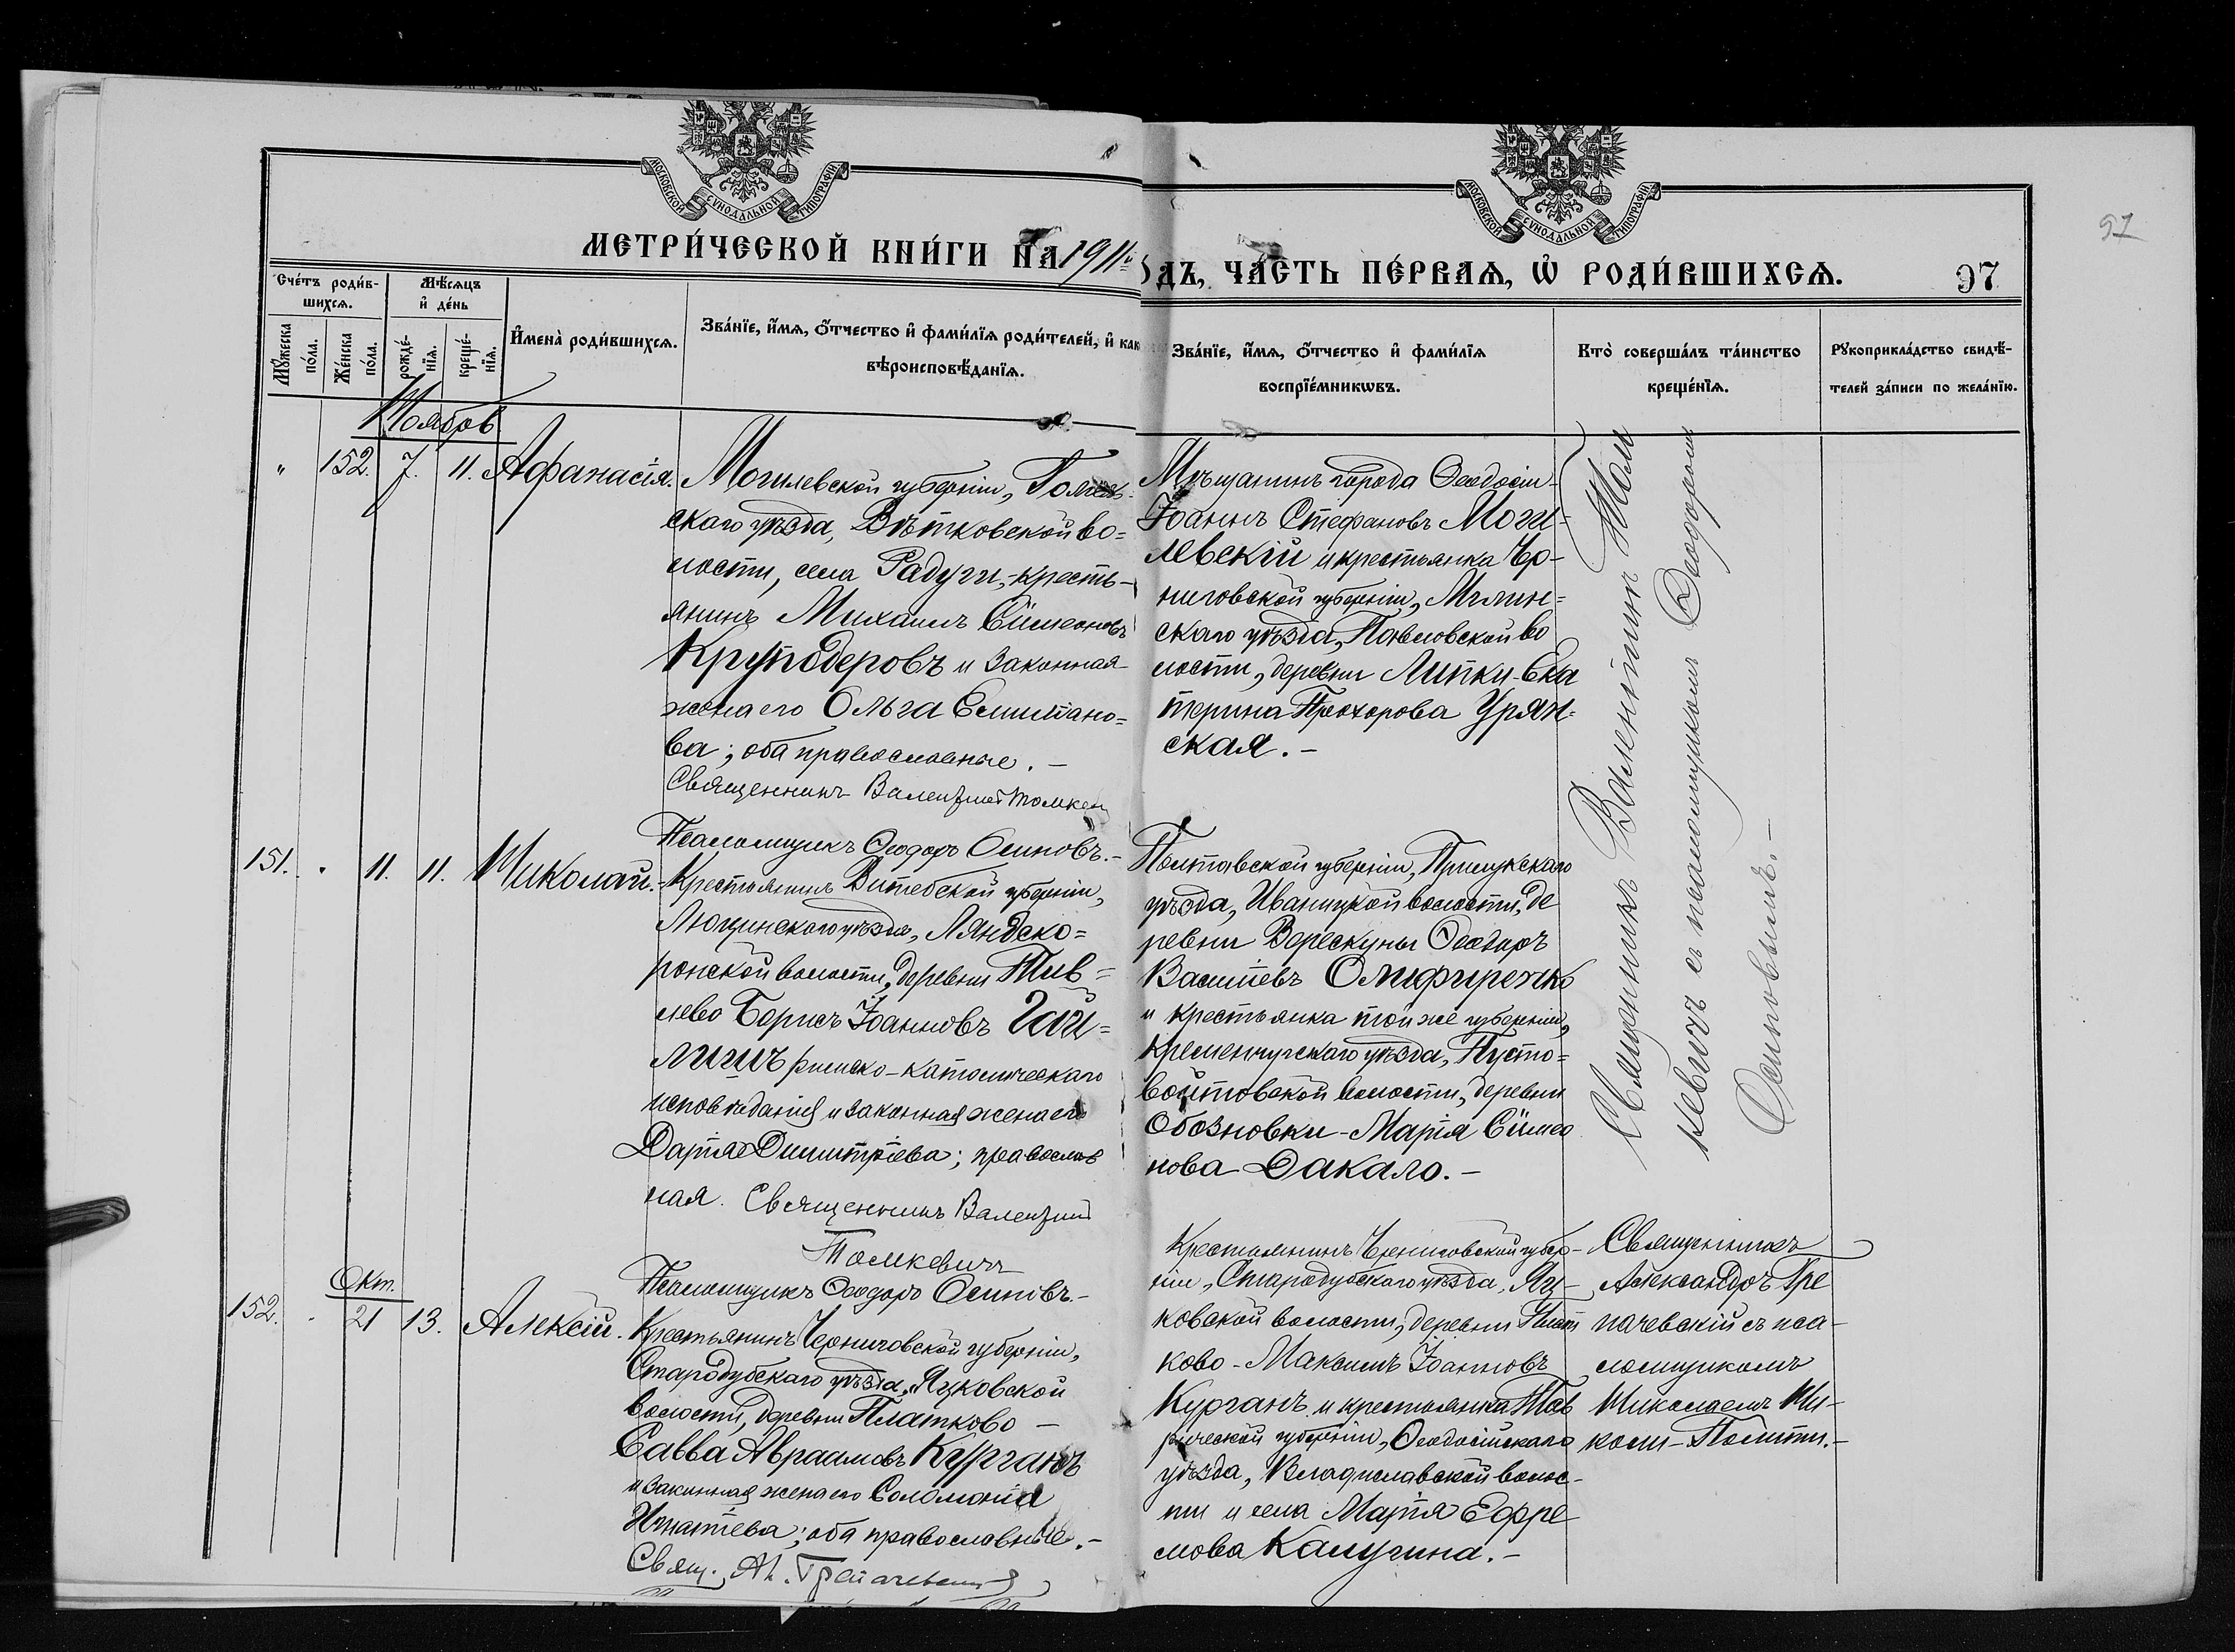 МОСКОВСКОЙ СѴНОДАЛЬНОЙ ТИПОГРАФІИ
МОСКОВСКОЙ СѴНОДАЛЬНОЙ ТИПОГРАФІИ
97
МЕТРИ́ЧЕСКОЙ КНИ́ГИ НА 1911й
ОДЪ, ЧА́СТЬ ПЕ́РВАѦ, Ѽ РОДИ́ВШИХСѦ.
97
Сче́тъ роди́в-
шихсѧ.
Мꙋ́жеска по́ла.
Же́нска по́ла.
Мѣ́сѧцъ
и҆ де́нь
рожде́-
нїѧ.
креще́-
нїѧ.
И҆мена̀ роди́вшихсѧ.
Зва́нїе, и҆́мѧ, ѻ҆́тчество и҆ фами́лїѧ роди́телей, и҆ как
вѣроисповѣ́данїѧ.
Зва́нїе, и҆́мѧ, ѻ҆́тчество и҆ фами́лїѧ
воспрїе́мникѡвъ.
Кто̀ соверша́лъ та́инство
креще́нїѧ.
Рꙋкоприкла́дство свидѣ́-
телей за́писи по жела́нїю.
Ноябрь
" 152. 7. 11. Аѳанасія.
Могилевской губерніи, Гомель-
скаго уѣзда, Вѣтковской во=
лости, села Радуги, кресть-
янинъ Михаилъ Сѵмеоновъ
Круподеровъ и законная
жена его Ольга Емилiано=
ва; оба православные. –
Священникъ Валентинъ Томкевич
Псаломщикъ Ѳеодоръ Осиповъ. –
Мѣщанинъ города Ѳеодосіи –
Іоаннъ Стефановъ Моги=
левскій и крестьянка Чер-
ниговской губерніи, Мглин=
скаго уѣзда, Павловской во
лости, деревни Липки – Ека
терина Прохорова Урян=
ская. –
Священникъ Валентинъ Том
кевичъ съ псаломщикомъ Ѳеодоромъ
Осиповымъ. –
151. " 11. 11. Николай. –
Крестьянинъ Витебской губерніи,
Люцинскаго уѣзда, Ляндско=
ронской волости, деревни Тив=
лево Борисъ Іоанновъ Гай=
лишъ римско-католическаго
исповѣданія и законная жена его
Дарія Димитріева; православ
ная. Священникъ Валентинъ
Томкевичъ
Псаломщикъ Ѳеодоръ Осиповъ. –
Полтавской губерніи, Прилукскаго
уѣзда, Иваницкой волости, де
ревни Верескуны Ѳеодоръ
Василіевъ Олифиренко
и крестьянка той же губерніи,
Кременчугскаго уѣзда, Пусто=
войтовской волости, деревни
Обозновки – Марія Сѵмео
нова Дакало. –
Окт.
152. " 21 13. Алексій.
Крестьянинъ Черниговской губерніи,
Стародубскаго уѣзда, Яцковской
волости, деревни Платково –
Савва Авраамовъ Курганъ
и законная жена его Соломонія
Игнатіева; оба православные. –
Свящ. Ал. Грепачевскій
Крестьянинъ Черниговской губер-
ніи, Стародубскаго уѣзда, Яц-
ковской волости, деревни Плат
ково – Максимъ Іоанновъ
Курганъ и крестьянка Тав
рической губерніи, Ѳеодосійскаго
уѣзда, Владиславской волос-
ти и села Марія Ефре
мова Калугина. –
Священникъ
Александръ Гре
пачевскій съ пса-
ломщикомъ
Николаемъ Ни-
коли – Политти. –